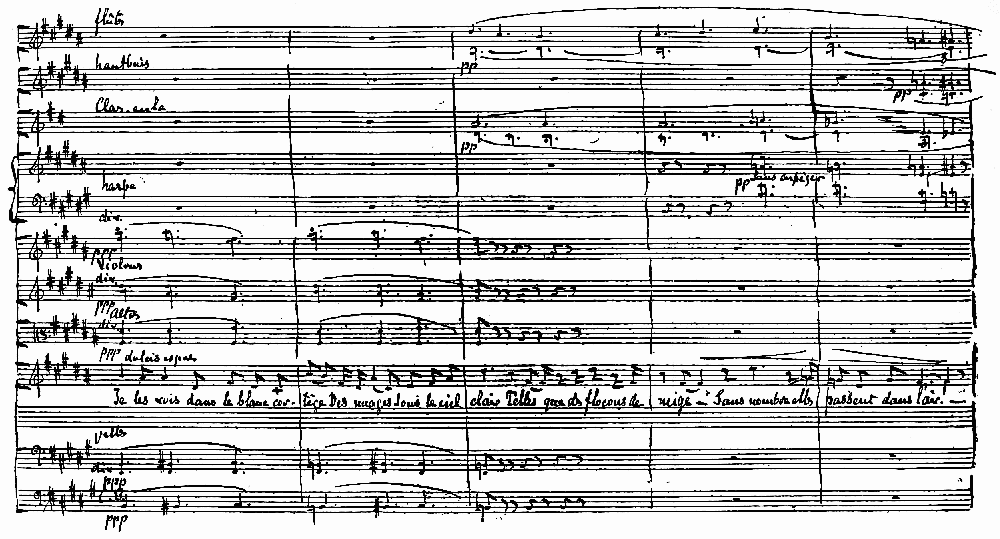 flûtes
pp
hautbois
pp
Clar. en la
pp
harpe
pp sans arpéger
div.
ppp
Violons
div.
ppp
altos
div.
ppp dulciss espres
Je les vois dans le blanc cor- tège Des nuages sous le ciel clair Telles que des flocons de neige - Sans nombre elles passent dans l'air. -
Velles
div.
ppp
ppp